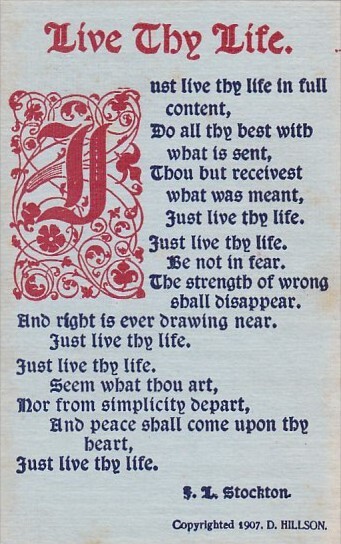 Live Thy Life.
Just live thy life in full
content,
Do all thy best with
what is sent,
Thou but receivest
what was meant,
Just live thy life.
Just live thy life.
Be not in fear.
The strength of wrong
shall disappear.
And right is ever drawing near.
Just live thy life.
Just live thy life.
Seem what thou art,
Nor from simplicity depart,
And peace shall come upon thy
heart,
Just live thy life.
F. L. Stockton.
Copyrighted 1907. D. HILLSON.